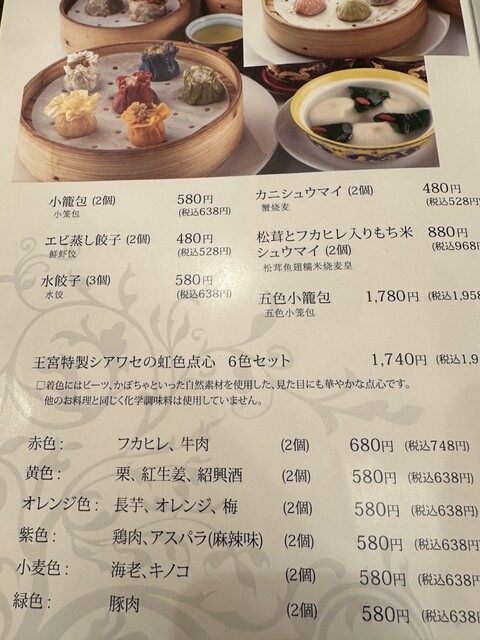 小籠包 (2個) 580円 (税込638円)
小笼包
エビ蒸し餃子 (2個) 480円 (税込528円)
鮮虾饺
水餃子 (3個) 580円 (税込638円)
水饺
カニシュウマイ (2個) 480円 (税込528円
蟹烧麦
松茸とフカヒレ入りもち米 880円 (税込968円
シュウマイ (2個)
松茸鱼翅糯米烧麦皇
五色小籠包 1,780円 (税込1,958
五色小笼包
王宮特製シアワセの虹色点心 6色セット 1,740円 (税込1,9
□着色にはビーツ、かぼちゃといった自然素材を使用した、見た目にも華やかな点心です。
他のお料理と同じく化学調味料は使用していません。
赤色: フカヒレ、牛肉 (2個) 680円 (税込748円)
黄色: 栗、紅生姜、紹興酒 (2個) 580円 (税込638円)
オレンジ色: 長芋、オレンジ、梅 (2個) 580円 (税込638円)
紫色: 鶏肉、アスパラ(麻辣味) (2個) 580円 (税込638円
小麦色: 海老、キノコ (2個) 580円 (税込638円
緑色: 豚肉 (2個) 580円 (税込638円